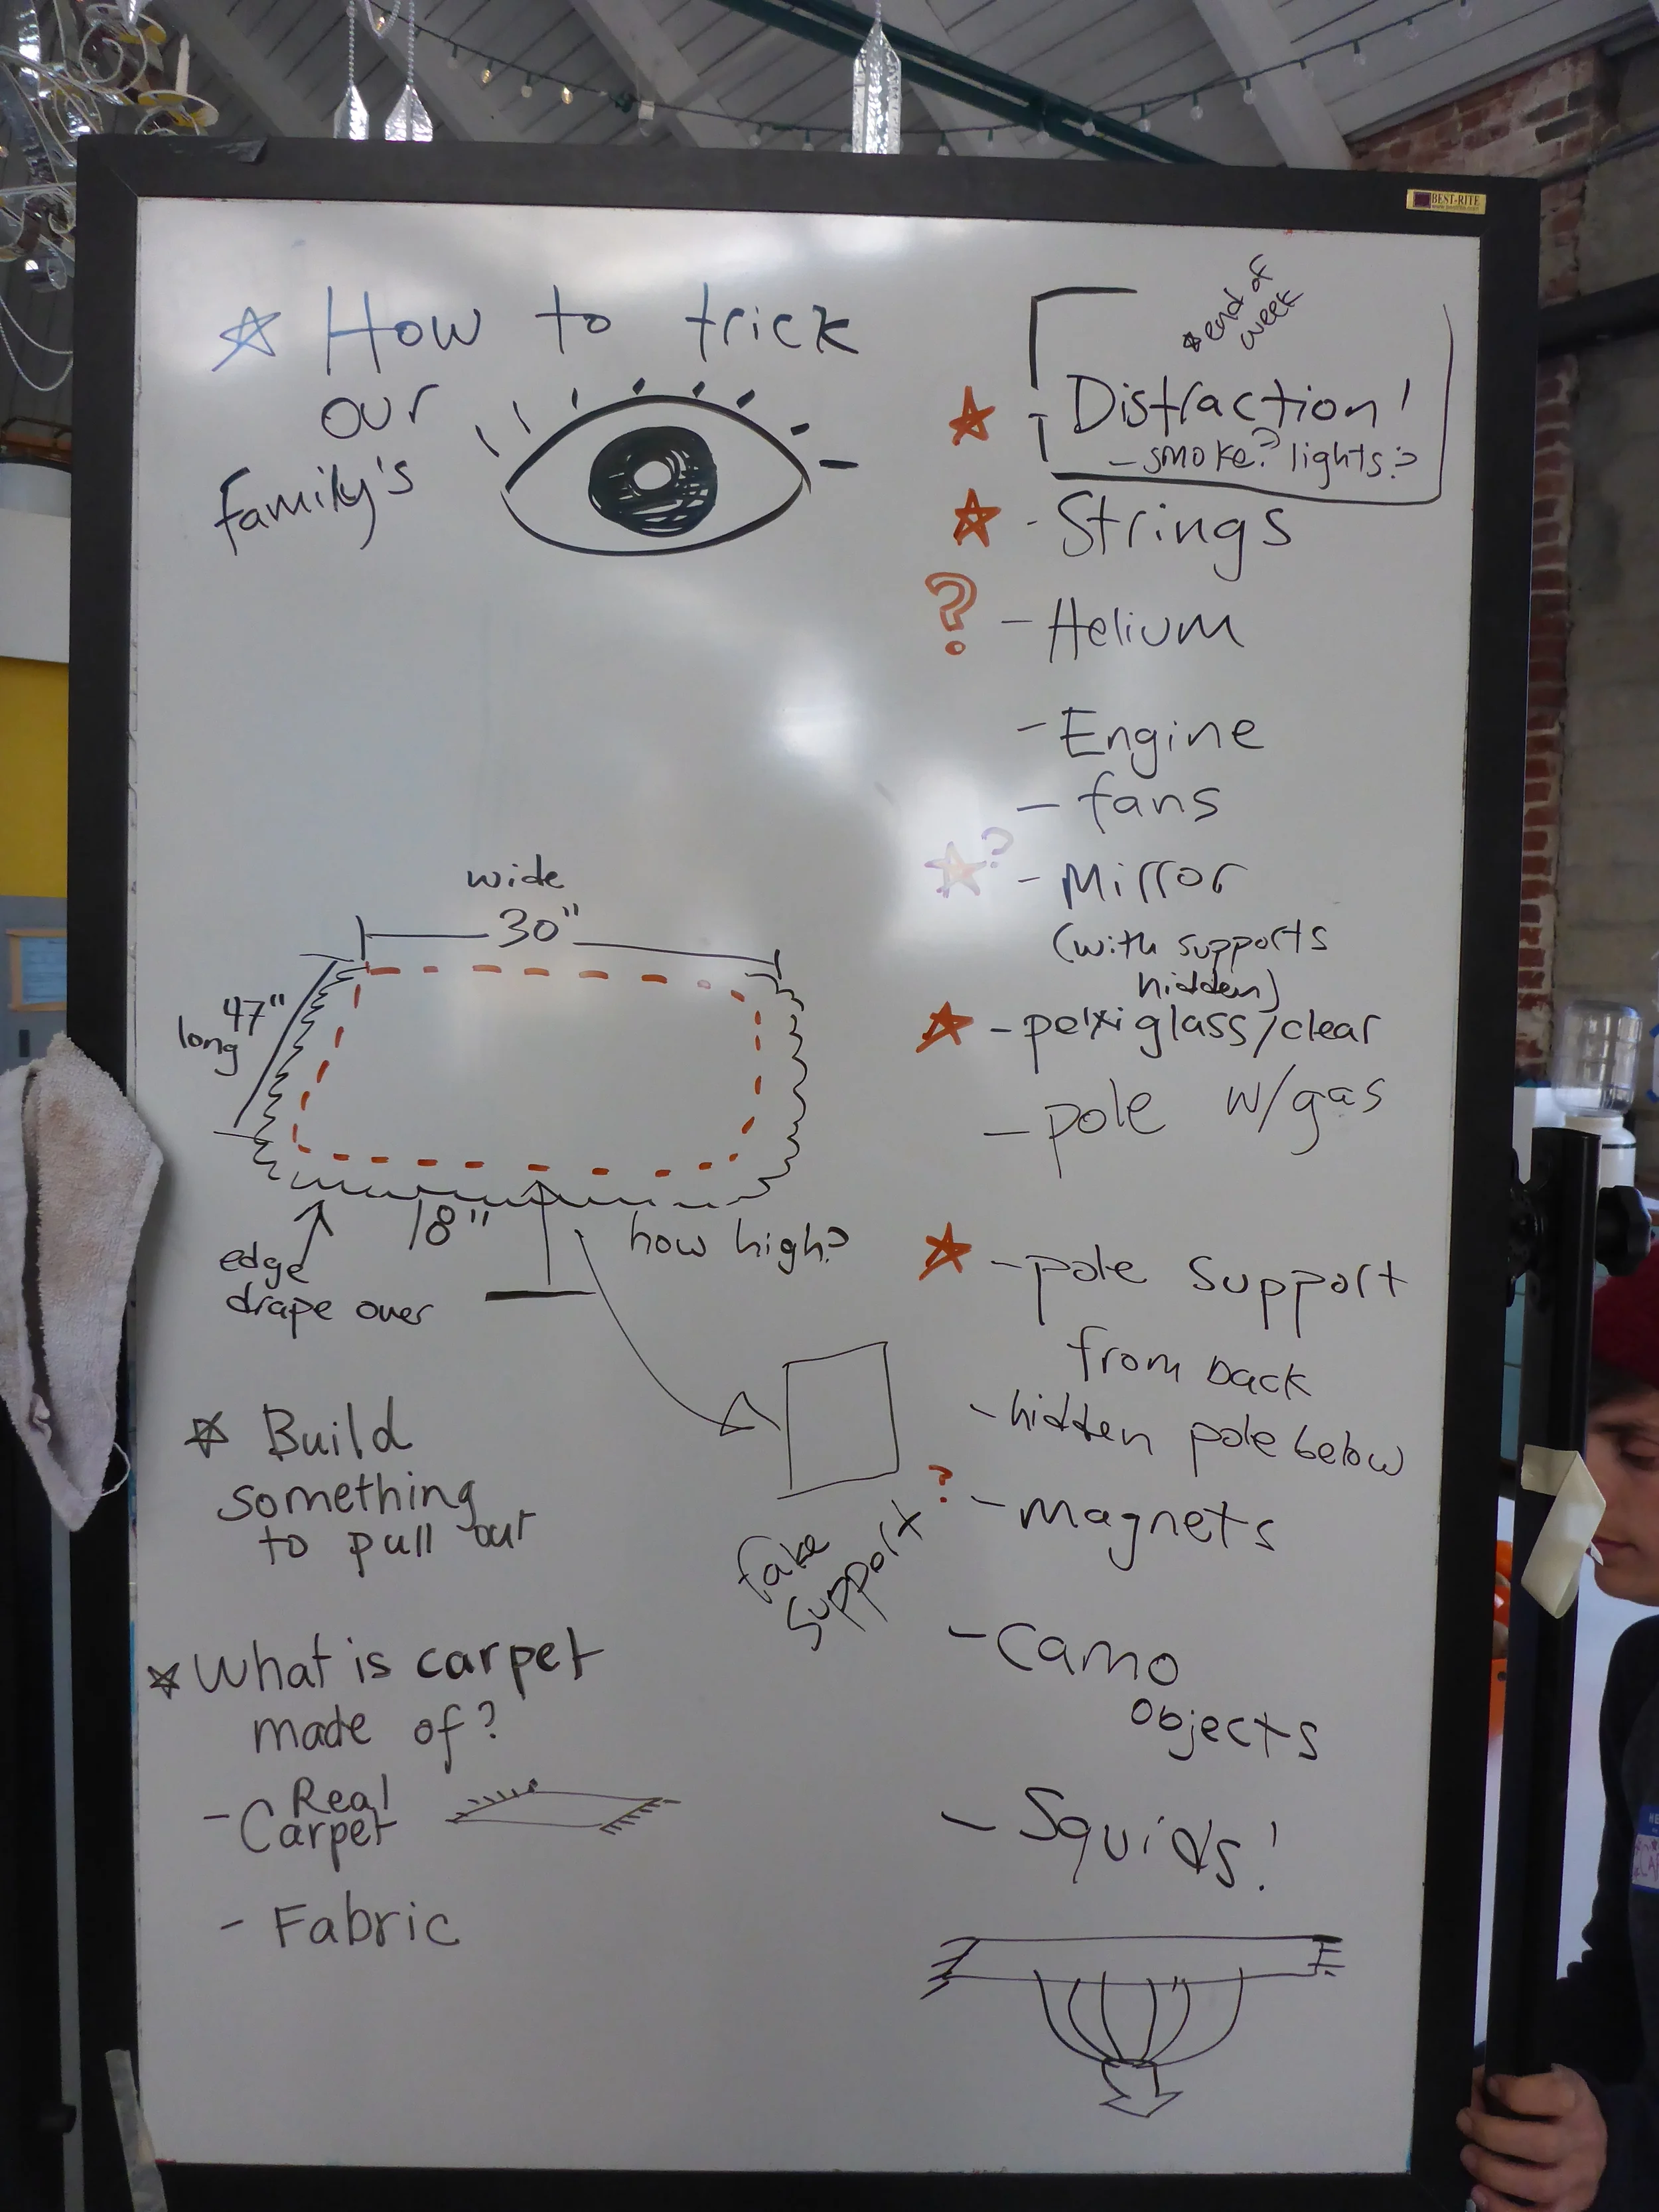 BEST-RITE
How to trick
our
family's
wide
30"
47"
long
18"
how high?
edge
drape over
fake
support
Build
something
to pull out
What is carpet
made of?
- Real
Carpet
- Fabric
*end of
week
- Distraction!
- smoke? lights?
- Strings
? - Helium
- Engine
- fans
? - Mirror
(with supports
hidden)
- pelxiglass/clear
- pole w/gas
- pole support
from back
- hidden pole below
? - magnets
- Camo
objects
- Squids!